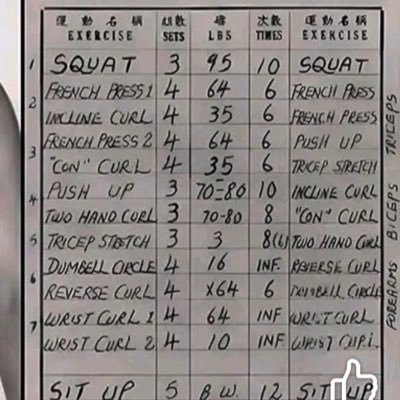 運動名稱 組數 磅 次數 運動名稱
EXERCISE SETS LBS TIMES EXERCISE
1 SQUAT 3 95 10 SQUAT
2 FRENCH PRESS 1 4 64 6 FRENCH PRESS
INCLINE CURL 4 35 6 FRENCH PRESS
3 FRENCH PRESS 2 4 64 6 PUSH UP
"CON" CURL 4 35 6 TRICEP STRETCH
4 PUSH UP 3 70-80 10 INCLINE CURL
TWO HAND CURL 3 70-80 8 "CON" CURL
5 TRICEP STRETCH 3 3 8(6) TWO HAND CURL
6 DUMBELL CIRCLE 4 16 INF. REVERSE CURL
REVERSE CURL 4 x64 6 DUMBELL CIRCLE
7 WRIST CURL 1 4 64 INF WRIST CURL
WRIST CURL 2 4 10 INF. WRIST CURL
SIT UP 5 B.W. 12 SIT UP
TRICEPS
BICEPS
FOREARMS